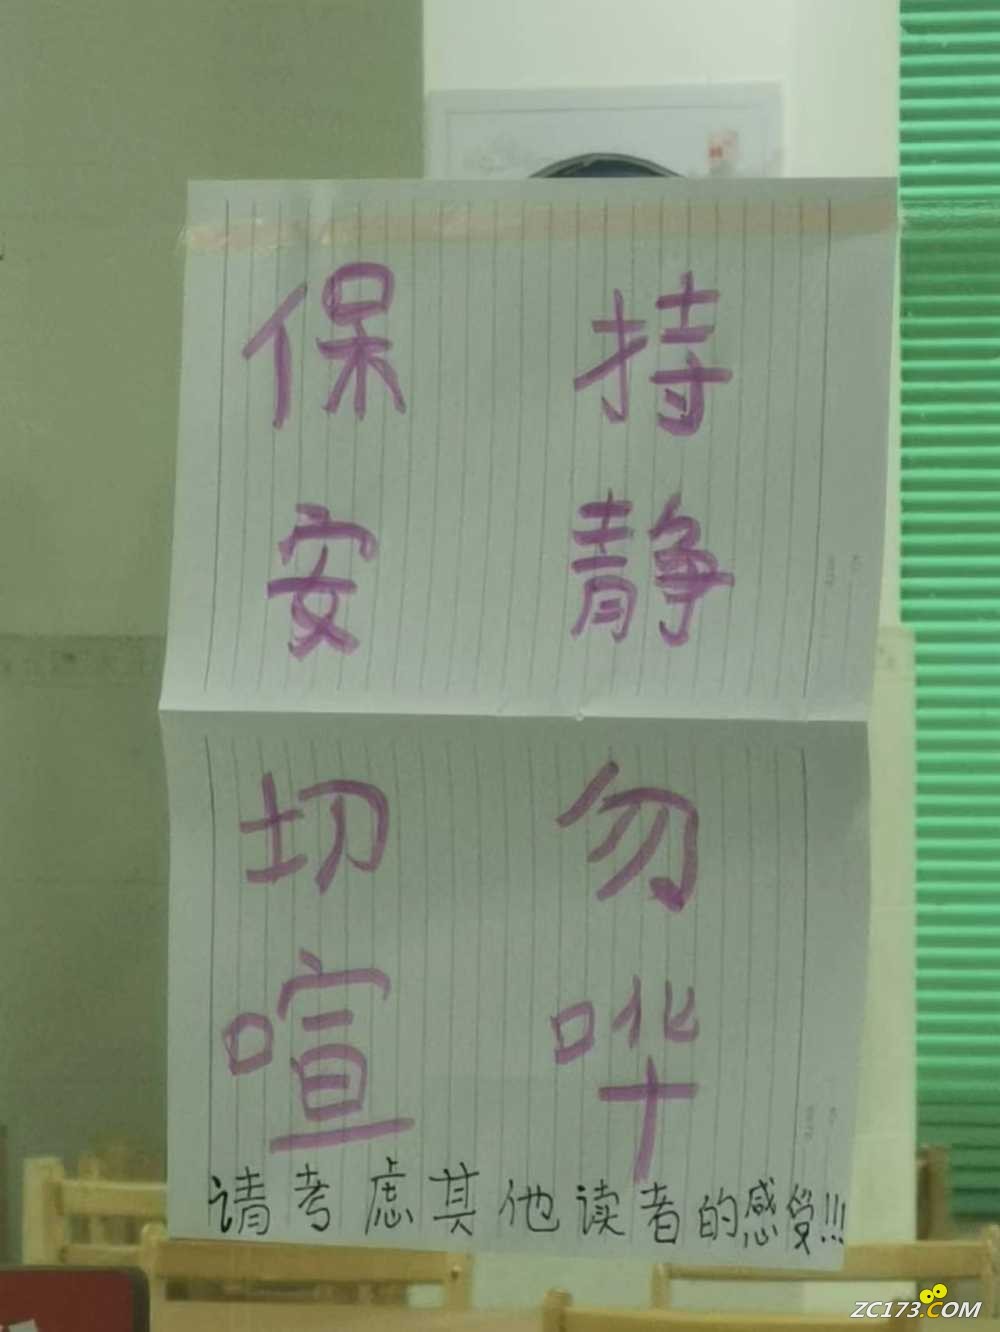 保持
安静
切勿
喧哗
请考虑其他读者的感受!!!
ZC173.COM